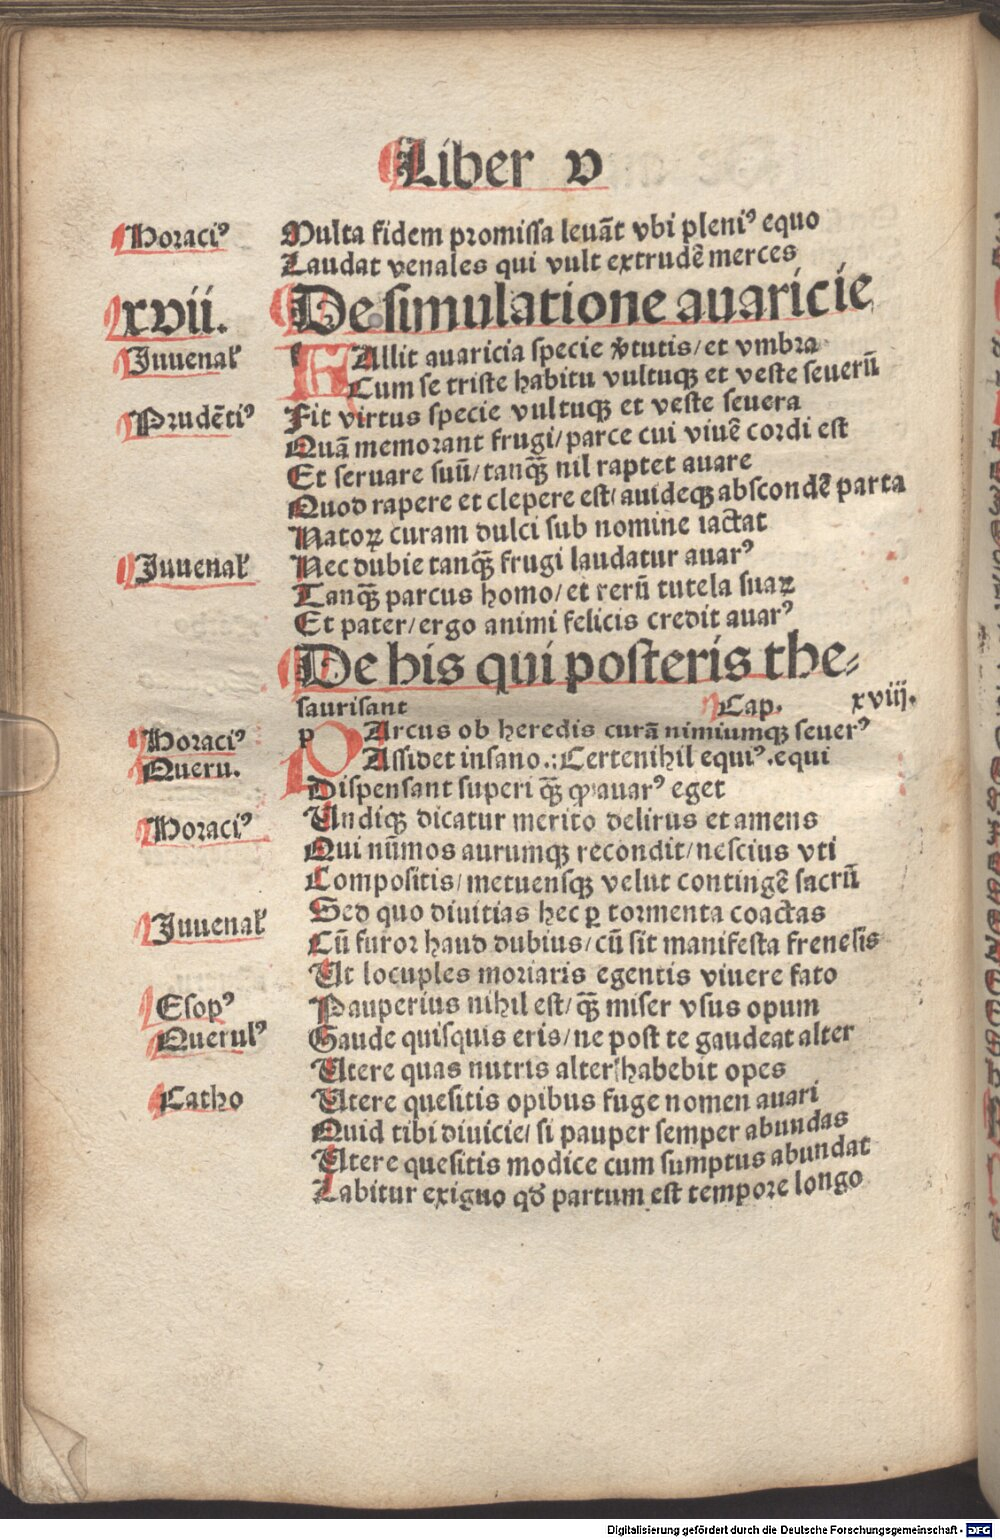 Liber v
Horaciꝰ Multa fidem promissa leuāt vbi pleniꝰ equo
Laudat venales qui vult extrudē merces
xvii. De simulatione auaricie
Juuenal̓ f FAllit auaricia specie v̓tutis/et vmbra
Cum se triste habitu vultuqꝫ et veste seuerū
Prudētiꝰ Fit virtus specie vultuqꝫ et veste seuera
Quā memorant frugi/parce cui viuē cordi est
Et seruare suū/tanqꝫ̄ nil raptet auare
Quod rapere et clepere est/auideqꝫ abscondē parta
Natoꝝ curam dulci sub nomine iactat
Juuenal̓ Nec dubie tanqꝫ̄ frugi laudatur auarꝰ
Tanqꝫ̄ parcus homo/et rerū tutela suaꝝ
Et pater/ergo animi felicis credit auarꝰ
De his qui posteris the⸗
saurisant Cap. xviij.
Horaciꝰ p PArcus ob heredis curā nimiumqꝫ seuerꝰ
Queru. Assidet insano.: Certenihil equiꝰ .equi
Dispensant superi qꝫ̄ ꝙ auarꝰ eget
Horaciꝰ Undiqꝫ dicatur merito delirus et amens
Qui nūmos aurumqꝫ recondit/nescius vti
Compositis/metuensqꝫ velut contingē sacrū
Sed quo diuitias hec ꝑ tormenta coactas
Juuenal̓ Cū furor haud dubius/cū sit manifesta frenesis
Ut locuples moriaris egentis viuere fato
Esopꝰ Pauperius nihil est/qꝫ̄ miser vsus opum
Querulꝰ Gaude quisquis eris/ne post te gaudeat alter
Utere quas nutris alter habebit opes
Catho Utere quesitis opibus fuge nomen auari
Quid tibi diuicie/ si pauper semper abundas
Utere quesitis modice cum sumptus abundat
Labitur exiguo qd̓ partum est tempore longo
Digitalisierung gefördert durch die Deutsche Forschungsgemeinschaft - DFG